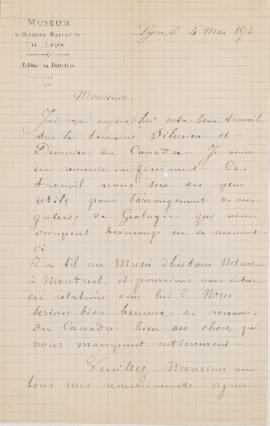 MUSEUM
D'HISTOIRE NATURELLE
DE LYON
Cabinet du Directeur
Lyon, le 4 Mai 189
Monsieur
J'ai reçu aujourd'hui votre beau travail
sur le terrain Silurien et
Devonien du Canada. Je vous
en remercie infiniment. Ce
travail nous sera
utile pour l'arrangement de nos
galeries de Géologie qui nous
occupent beaucoup en ce moment
ci
Y a t il un Musée d'histoire Naturelle
à Montreal et pourrions nous entrer
en relations avec lui? Nous
serions bien heureux de recevoir
du Canada bien des choses qui
nous manquent entièrement
Veuillez Monsieur avec
tous mes remerciements agréer